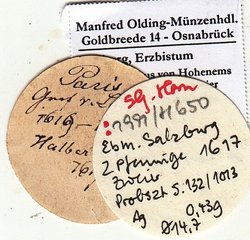 Manfred Olding-Münzenhdl.
Goldbreede 14 - Osnabrück
rg, Erzbistum
us von Hohenems
Paris
Graf v.
1619-
Halber
16
Slg. Horn
1997/H650
Ebm. Salzburg
2 Pfennige 1617
Zwitt
Probszt S. 132/1013
Ag 0,43g
Ø14,7